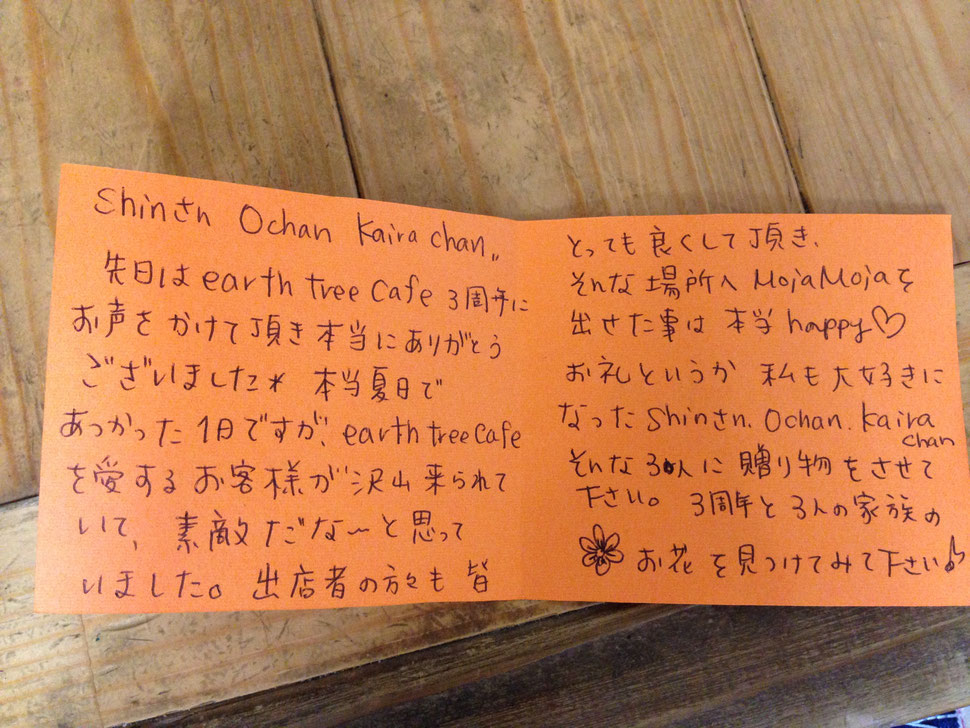 Shinさん Ochan Kaira chan,,
先日は earth tree Cafe 3周年に
お声を かけて 頂き 本当に ありがとう
ございました* 本当夏日で
あつかった 1日ですが、earth tree Cafe
を愛する お客様が 沢山 来られて
いて、素敵 だな〜と思って
いました。出店者の方々も 皆
とっても 良くして 頂き、
そんな 場所へ MojaMojaを
出せた事は 本当 happy♡
お礼というか 私も 大好きに
なった Shinさん. Ochan. Kaira
chan
そんな 3人に 贈り物をさせて
下さい。3周年と 3人の家族の
お花 を見つけてみて下さい♪